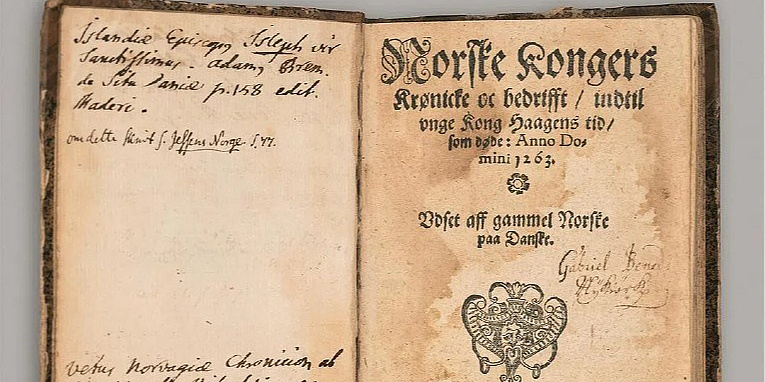 Islandiæ Episcopꝯ Isleph vir
Sanctissimus. Adamꝯ Brem.
de Situ Daniæ p. 158 edit.
Maderi.
om dette skrift s. Jessens Norge S. 77.
vetus Norvagiæ Chronicon ab
Norske Kongers
Krønicke oc bedrifft / indtil
vnge Kong Haagens tid/
som døde: Anno Do-
mini 1263.
Vdset aff gammel Norske
paa Danske.
Gabriel